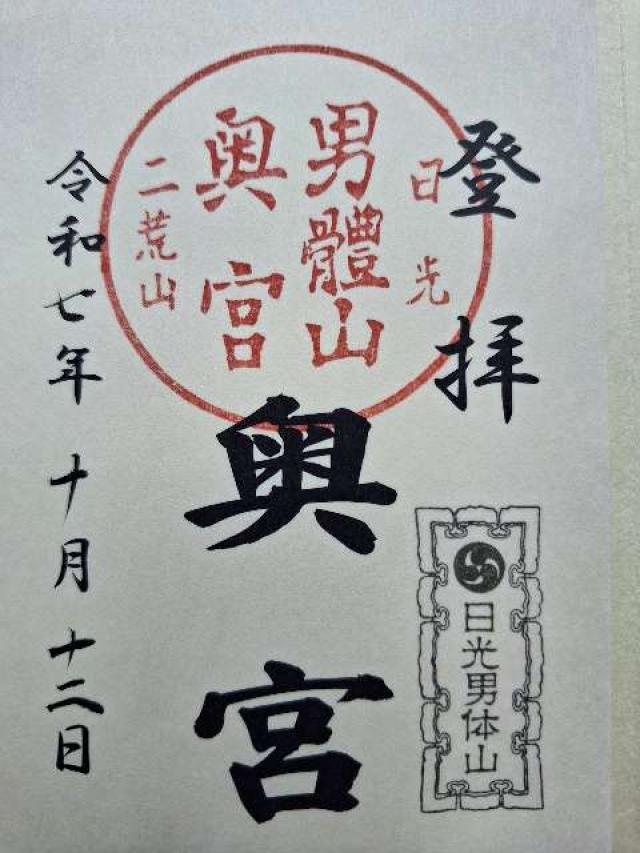 登拝
日光
男體山
奥宮
二荒山
奥宮
日光男体山
令和七年十月十二日